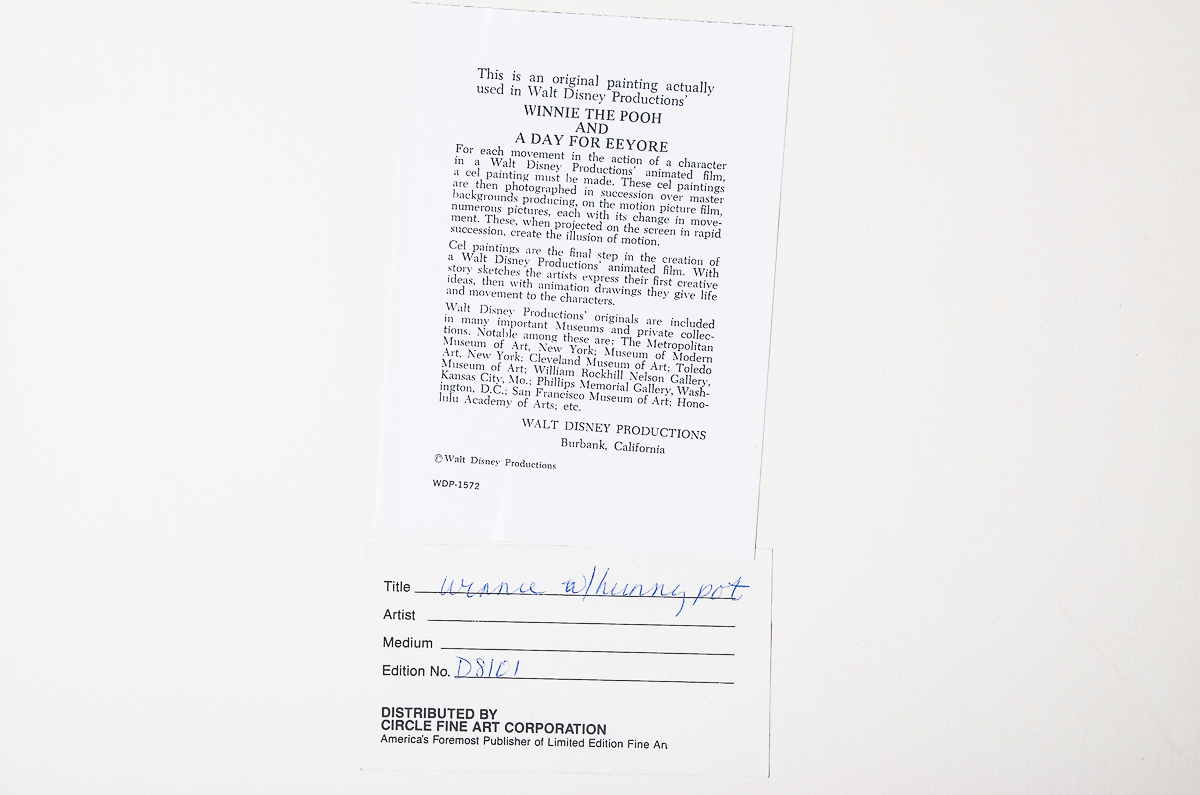 This is an original painting actually
used in Walt Disney Productions'
WINNIE THE POOH
AND
A DAY FOR EEYORE
For each movement in the action of a character
in a Walt Disney Productions' animated film,
a cel painting must be made. These cel paintings
are then photographed in succession over master
backgrounds producing, on the motion picture film,
numerous pictures, each with its change in move-
ment. These, when projected on the screen in rapid
succession, create the illusion of motion.
Cel paintings are the final step in the creation of
a Walt Disney Productions' animated film. With
story sketches the artists express their first creative
ideas, then with animation drawings they give life
and movement to the characters.
Walt Disney Productions' originals are included
in many important Museums and private collec-
tions. Notable among these are: The Metropolitan
Museum of Art, New York; Museum of Modern
Art, New York; Cleveland Museum of Art; Toledo
Museum of Art; William Rockhill Nelson Gallery,
Kansas City, Mo.; Phillips Memorial Gallery, Wash-
ington, D.C.; San Francisco Museum of Art; Hono-
lulu Academy of Arts; etc.
WALT DISNEY PRODUCTIONS
Burbank, California
© Walt Disney Productions
WDP-1572
Title winnie w/hunny pot
Artist
Medium
Edition No. D8101
DISTRIBUTED BY
CIRCLE FINE ART CORPORATION
America's Foremost Publisher of Limited Edition Fine Art